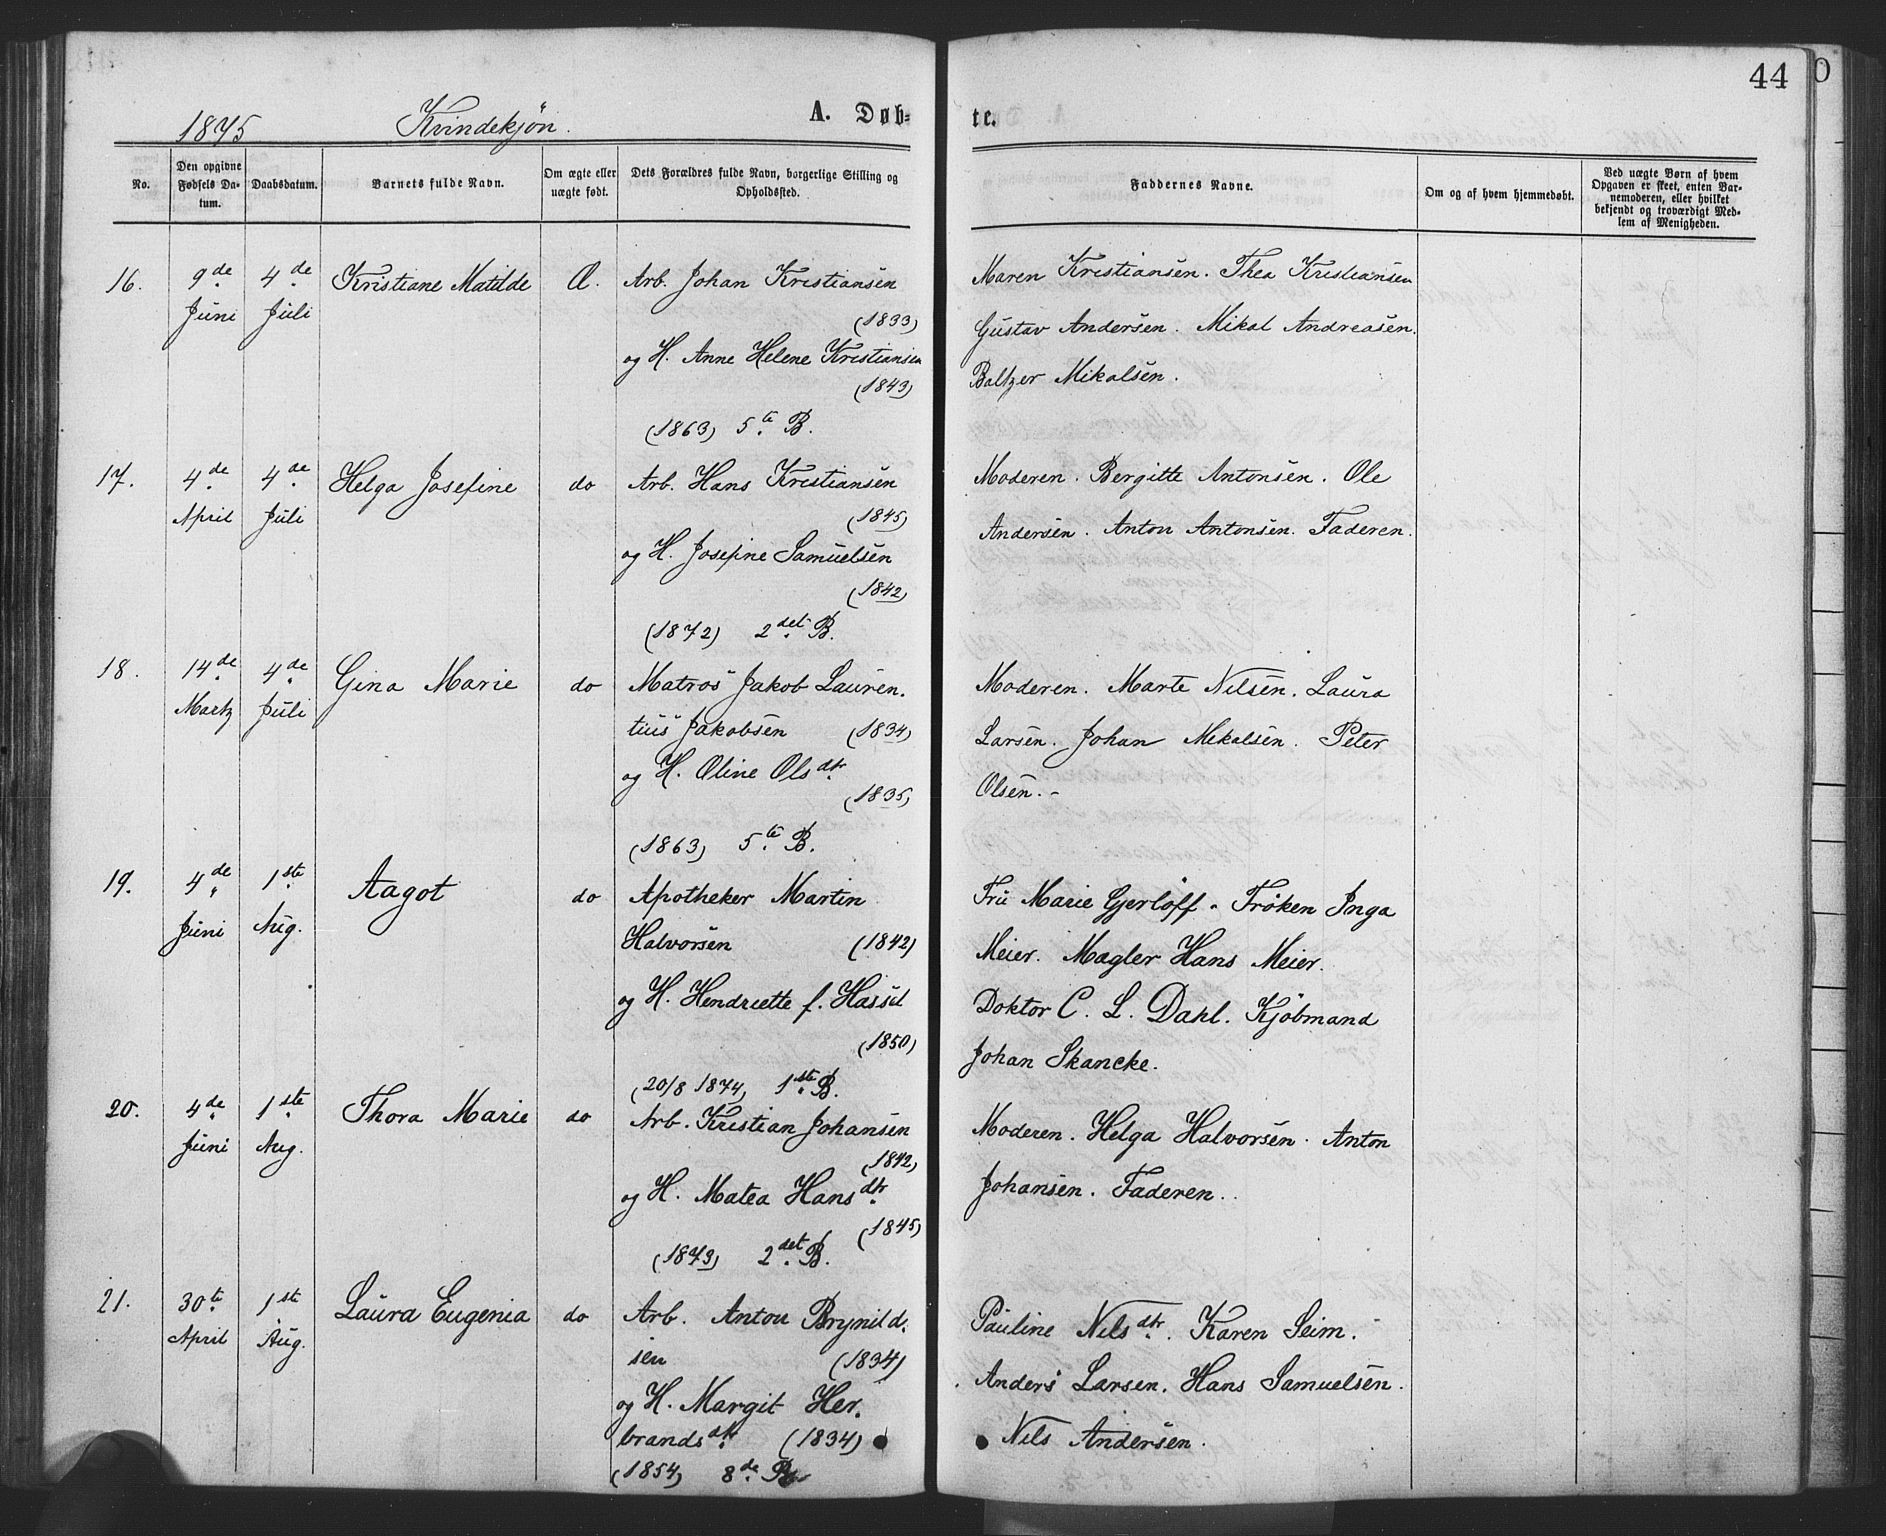 44
1875 Kvindekjøn. A. Døb= te.
No. | Den opgivne Fødsels Da-tum. | Daabsdatum. | Barnets fulde Navn. | Om ægte eller uægte født. | Dets Forældres fulde Navn, borgerlige Stilling og Opholdssted. | Faddernes Navne. | Om og af hvem hjemmedøbt. | Ved uægte Børn af hvem Opgaven er skeet, enten Bar-nemoderen, eller hvilket bekjendt og troværdigt Med-lem af Menigheden.
16. 9de Juni 4de Juli Kristiane Matilde Æ. Arb. Johan Kristiansen
(1833)
og H. Anne Helene Kristiansen
(1843)
(1863) 5te B.
Maren Kristiansen. Thea Kristiansen
Gustav Andersen. Mikal Andreasen.
Baltzer Mikalsen.
17. 4de April 4de Juli Helga Josefine do Arb. Hans Kristiansen
(1845)
og H. Josefine Samuelsen
(1842)
(1872) 2det B.
Moderen. Bergitte Antonsen. Ole
Andersen. Anton Antonsen. Faderen.
18. 14de Martz 4de Juli Gina Marie do Matros Jakob Lauren.
tius Jakobsen (1834)
og H. Oline Olsdtr
(1835)
(1863) 5te B.
Moderen. Marte Nilsen. Laura
Larsen. Johan Mikalsen. Peter
Olsen.-
19. 4de Juni 1ste Aug. Aagot do Apotheker Martin
Halvorsen (1842)
og H. Hendriette f. Hassel
(1850)
(20/8 1874) 1ste B.
Fru Marie Gjerløff - Frøken Inga
Meier. Magler Hans Meier.
Doktor C. L. Dahl. Kjøbmand
Johan Skancke.
20. 4de Juni 1ste Aug. Thora Marie do Arb. Kristian Johansen
(1842)
og H. Matea Hansdtr
(1845)
(1873) 2det B.
Moderen. Helga Halvorsen. Anton
Johansen. Faderen.
21. 30te April 1ste Aug. Laura Eugenia do Arb. Anton Brynild.
sen (1834)
og H. Margit Her.
brandsdtr (1834)
(1854) 8de B.
Pauline Nilsdtr. Karen Seim.
Anders Larsen. Hans Samuelsen.
Nils Andersen.